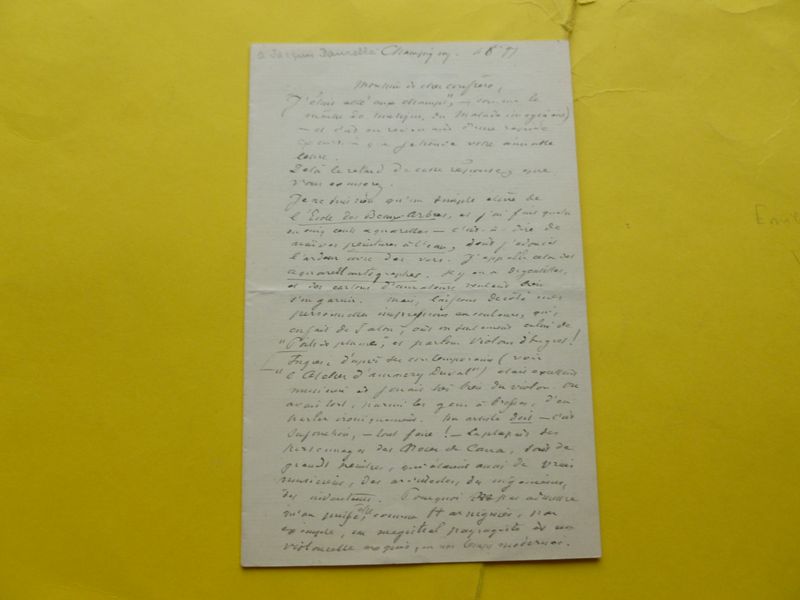 a Jacques Daurelle Champigny.
Monsieur et cher confrère,
J'étais allé "aux champs", — comme le
du Malade imaginaire)
— et c'est en revenant d'une
que je trouve votre aimable
De là le retard de cette réponse,
vous excuserez.
Je ne suis qu'un simple élève de
l'École des Beaux-Arbres, et j'ai fait quelques
cents aquarelles — c'est-à-dire de
naïves peintures à l'eau, dont j'adoucis
l'ardeur avec des vers. J'appelle cela des
aquarellautographes. Il y en a
et des cartons d'amateurs veulent bien
s'en garnir. Mais, laissons de côté mes
personnelles impressions en couleurs, qui,
en fait de Salon, ont eu seulement celui de
"Poil et plume", et parlons Violons d'Ingres!
Ingres, d'après ses contemporains (voir
"l'Atelier d'Amaury Duval") était excellent
musicien et jouait très bien du violon. On
avait tort, parmi les gens à brosses, d'en
parler ironiquement. Un artiste doit — c'est
— tout faire! — La plupart des
personnages des Noces de Cana, sont de
grands peintres, qui étaient aussi de vrais
musiciens, des architectes, des ingénieurs,
des inventeurs. Pourquoi pas admettre
qu'on puisse être, comme Harpignies, par
exemple, un magistral paysagiste et un
violoncelle exquis, en nos temps modernes.